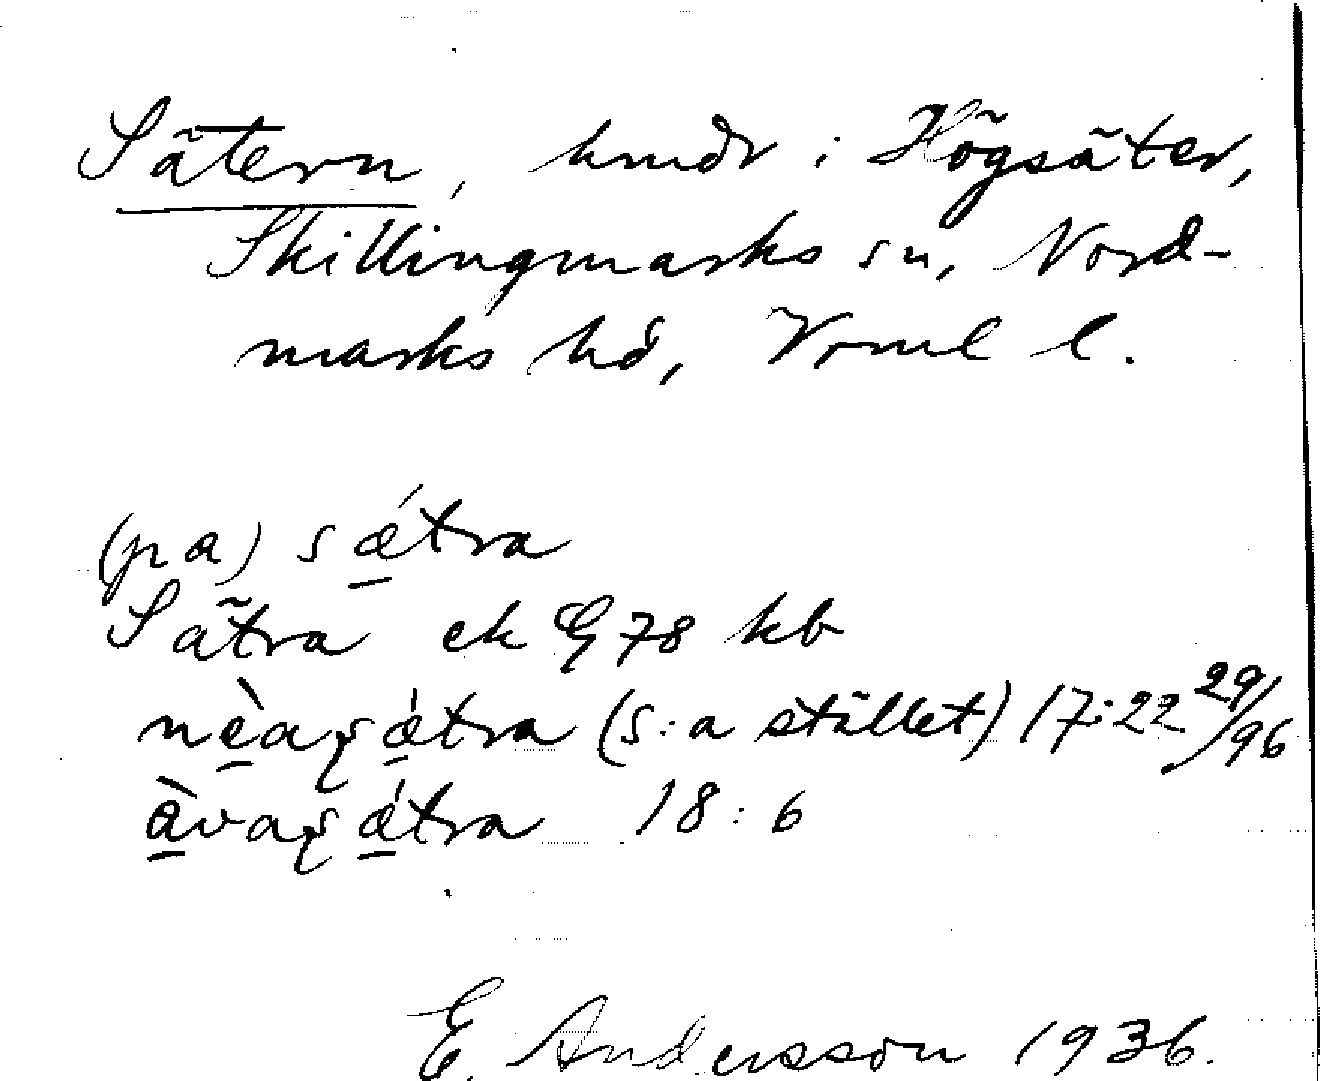 Sätern, hmdr i Högsäter,
Skillingmarks sn, Nord-
marks hd, Vrml l.
(pa) sǽ̱tra
Sätra ek G 78 kb
nè̱aʂǽ̱tra (s:a stället) 17:22 29/96
à̱vaʂǽ̱tra 18:6
E. Andersson 1936.